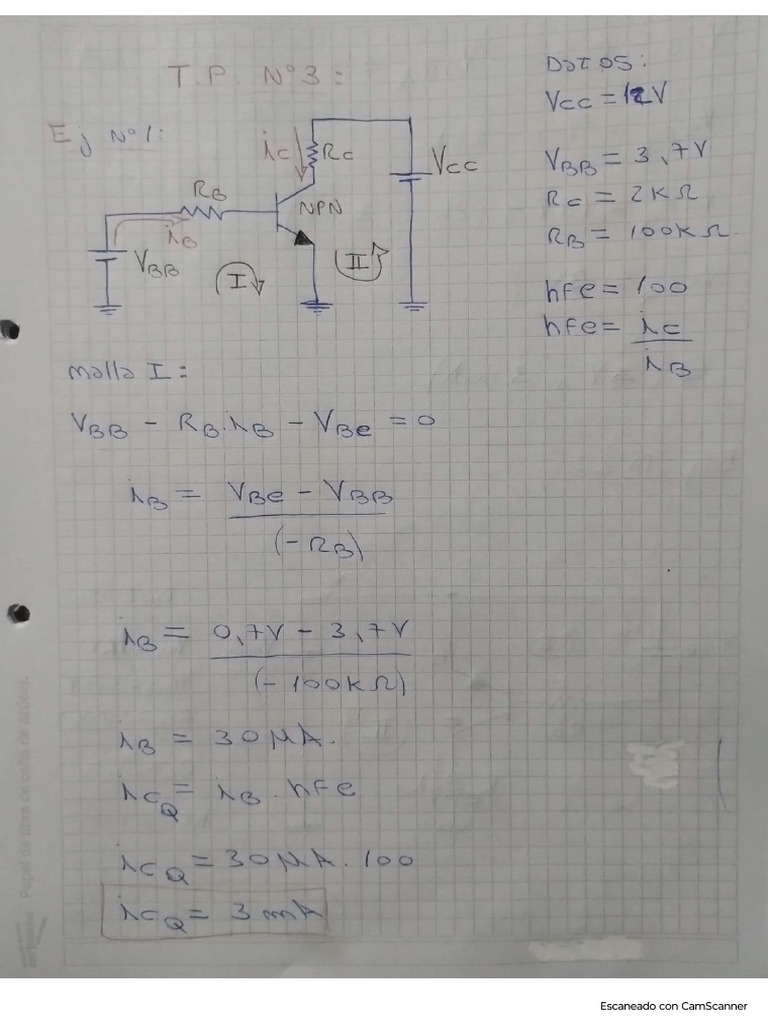 T.P. N°3:
Ej N°1:
DATOS:
Vcc = 12V
VBB = 3,7V
Rc = 2KΩ
RB = 100KΩ
hFe = 100
hFe = ic
iB
ic
Rc
Vcc
RB
NPN
iB
VBB
I
II
malla I:
VBB - RB.iB - VBe = 0
iB = VBe - VBB
(-RB)
iB = 0,7V - 3,7V
(-100KΩ)
iB = 30μA.
icQ = iB . hFe
icQ = 30μA . 100
icQ = 3mA
Escaneado con CamScanner